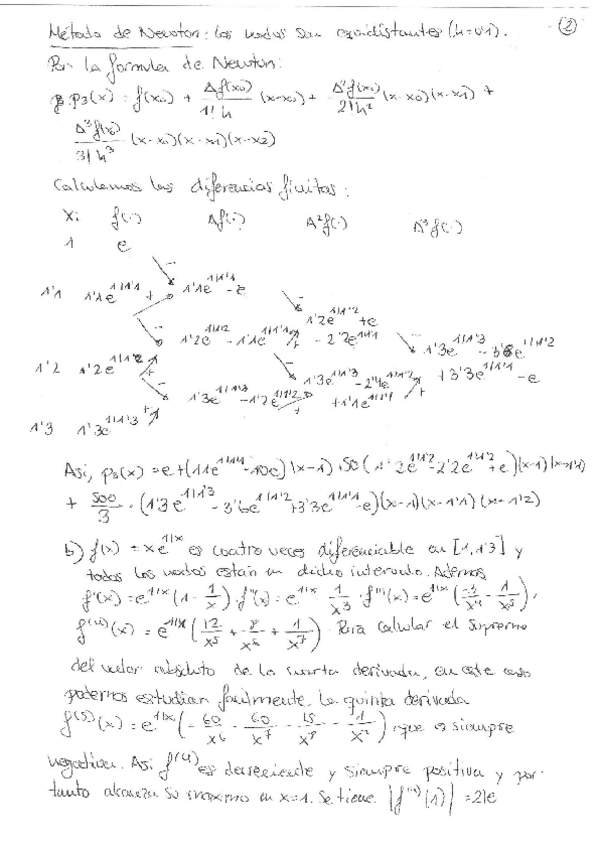 Método de Newton: los nodos son equidistantes (h=0'1). (2)
Por la formula de Newton:
p₃(x) = f(x₀) + Δf(x₀)/1!h (x-x₀) + Δ²f(x₀)/2!h² (x-x₀)(x-x₁) +
Δ³f(x₀)/3!h³ (x-x₀)(x-x₁)(x-x₂)
Calculamos las diferencias finitas:
xᵢ f(·) Δf(·) Δ²f(·) Δ³f(·)
1 e
1'1 1'1e^{1/1'1} + 1'1e^{1/1'1} - e
1'2e^{1/1'2} + e
1'2e^{1/1'2} - 1'1e^{1/1'1} - 2'2e^{1/1'1} 1'3e^{1/1'3} - 3'6e^{1/1'2}
1'2 1'2e^{1/1'2} 1'3e^{1/1'3} - 2'4e^{1/1'2} + 3'3e^{1/1'1} - e
1'3e^{1/1'3} - 1'2e^{1/1'2} + 1'1e^{1/1'1}
1'3 1'3e^{1/1'3}
Asi, p₃(x) = e + (11e^{1/1'1} - 10e)(x-1) + 50(1'2e^{1/1'2} - 2'2e^{1/1'1} + e)(x-1)(x-1'1)
+ 500/3 · (1'3e^{1/1'3} - 3'6e^{1/1'2} + 3'3e^{1/1'1} - e)(x-1)(x-1'1)(x-1'2)
b) f(x) = xe^{1/x} es cuatro veces diferenciable en [1,1'3] y
todos los nodos están en dicho intervalo. Además
f'(x) = e^{1/x}(1 - 1/x), f''(x) = e^{1/x} 1/x³, f'''(x) = e^{1/x}(-3/x⁴ - 1/x⁵),
f^{(4)}(x) = e^{1/x}(12/x⁵ + 8/x⁶ + 1/x⁷). Para calcular el supremo
del valor absoluto de la cuarta derivada, en este caso
podemos estudiar facilmente la quinta derivada
f^{(5)}(x) = e^{1/x}(-60/x⁶ - 60/x⁷ - 15/x⁸ - 1/x⁹) que es siempre
negativa. Asi f^{(4)} es decreciente y siempre positiva y por
tanto alcanza su maximo en x=1. Se tiene |f^{(4)}(1)| = 21e